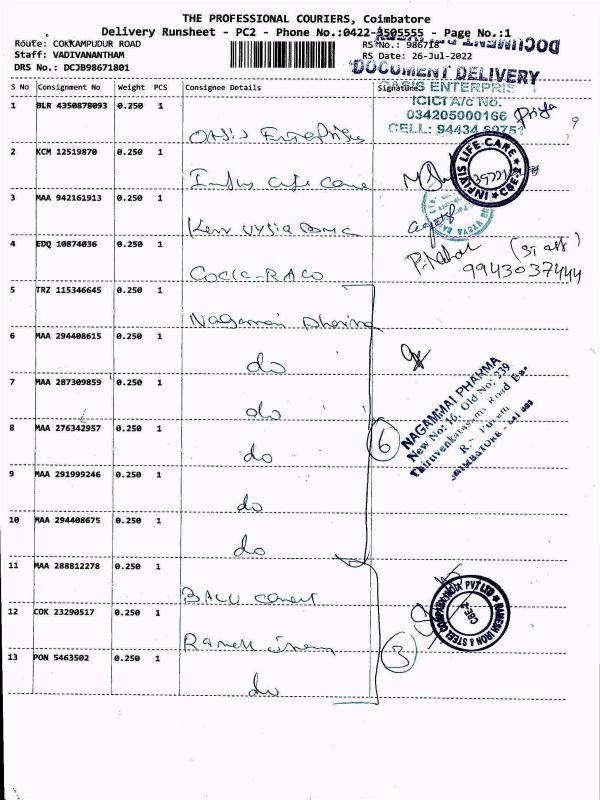 THE PROFESSIONAL COURIERS, Coimbatore
Delivery Runsheet - PC2 - Phone No.:0422-3505555 - Page No.:1
Route: COKKAMPUDUR ROAD
RS No.: 986718
Staff: VADIVANANTHAM
RS Date: 26-Jul-2022
DRS No.: DCJB98671801
DOCUMENT DELIVERY
DOCUMENT DELIVERY
S No Consignment No Weight PCS Consignee Details Signature
OASIS ENTERPRIS
ICICI A/c No.
034205000166
CELL: 94434 60751
Priya
9
1 BLR 4350878093 0.250 1 Oasis Enterprises
2 KCM 12519870 0.250 1
INFIVIS LIFE CARE CBE-2
3 MAA 942161913 0.250 1
4 EDQ 10874036 0.250 1
9943037444
5 TRZ 115346645 0.250 1 Nagamai Pharma
6 MAA 294408615 0.250 1 do
7 MAA 287309859 0.250 1 do
8 MAA 276342957 0.250 1 do
6
NAGAMMAI PHARMA
New No: 16, Old No: 239
Thiruvenkatasamy Road Ea
R.S. Puram
COIMBATORE - 641 002
9 MAA 291999246 0.250 1 do
10 MAA 294408675 0.250 1 do
11 MAA 288812278 0.250 1
12 COK 23290517 0.250 1
3
RAMESH IRON & STEEL COMPANY INDIA PVT LTD
CBE-2
13 PON 5463502 0.250 1 do